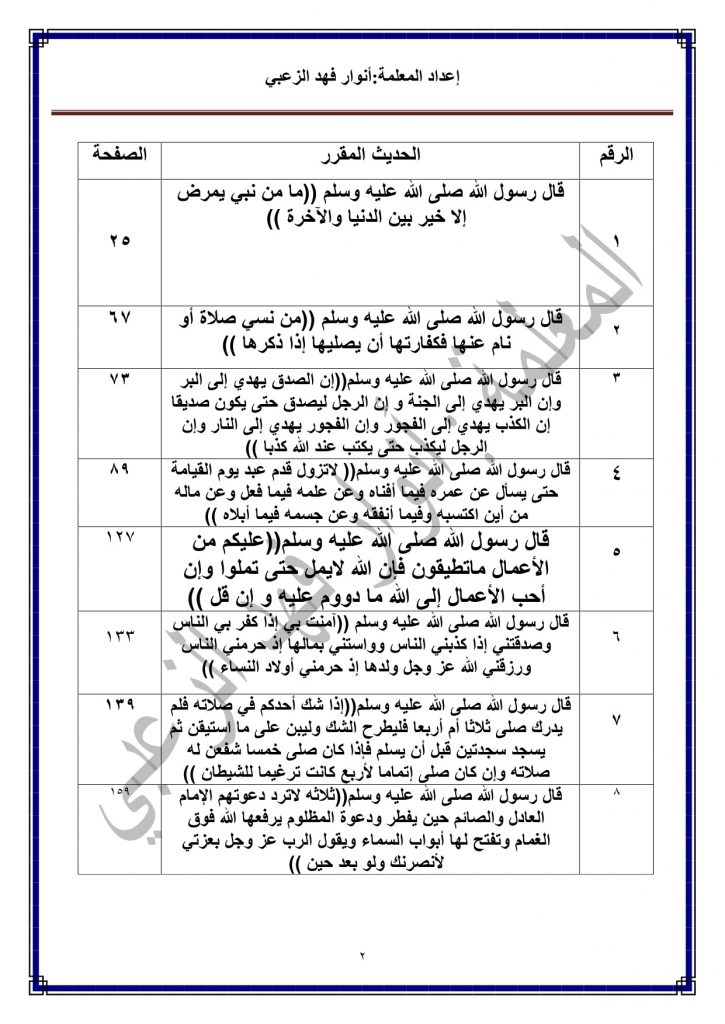 إعداد المعلمة:أنوار فهد الزعبي
الرقم الحديث المقرر الصفحة
١
قال رسول الله صلى الله عليه وسلم ((ما من نبي يمرض
إلا خير بين الدنيا والآخرة ))
٢٥
٢
قال رسول الله صلى الله عليه وسلم ((من نسي صلاة أو
نام عنها فكفارتها أن يصليها إذا ذكرها ))
٦٧
٣
قال رسول الله صلى الله عليه وسلم((إن الصدق يهدي إلى البر
وإن البر يهدي إلى الجنة و إن الرجل ليصدق حتى يكون صديقا
إن الكذب يهدي إلى الفجور وإن الفجور يهدي إلى النار وإن
الرجل ليكذب حتى يكتب عند الله كذبا ))
٧٣
٤
قال رسول الله صلى الله عليه وسلم(( لاتزول قدم عبد يوم القيامة
حتى يسأل عن عمره فيما أفناه وعن علمه فيما فعل وعن ماله
من أين اكتسبه وفيما أنفقه وعن جسمه فيما أبلاه ))
٨٩
٥
قال رسول الله صلى الله عليه وسلم((عليكم من
الأعمال ماتطيقون فإن الله لايمل حتى تملوا وإن
أحب الأعمال إلى الله ما دووم عليه و إن قل ))
١٢٧
٦
قال رسول الله صلى الله عليه وسلم ((آمنت بي إذا كفر بي الناس
وصدقتني إذا كذبني الناس وواستني بمالها إذ حرمني الناس
ورزقني الله عز وجل ولدها إذ حرمني أولاد النساء ))
١٣٣
٧
قال رسول الله صلى الله عليه وسلم((إذا شك أحدكم في صلاته فلم
يدرك صلى ثلاثا أم أربعا فليطرح الشك وليبن على ما استيقن ثم
يسجد سجدتين قبل أن يسلم فإذا كان صلى خمسا شفعن له
صلاته وإن كان صلى إتماما لأربع كانت ترغيما للشيطان ))
١٣٩
٨
قال رسول الله صلى الله عليه وسلم((ثلاثه لاترد دعوتهم الإمام
العادل والصائم حين يفطر ودعوة المظلوم يرفعها الله فوق
الغمام وتفتح لها أبواب السماء ويقول الرب عز وجل بعزتي
لأنصرنك ولو بعد حين ))
١٥٩
المعلمة : أنوار فهد الزعبي
٢